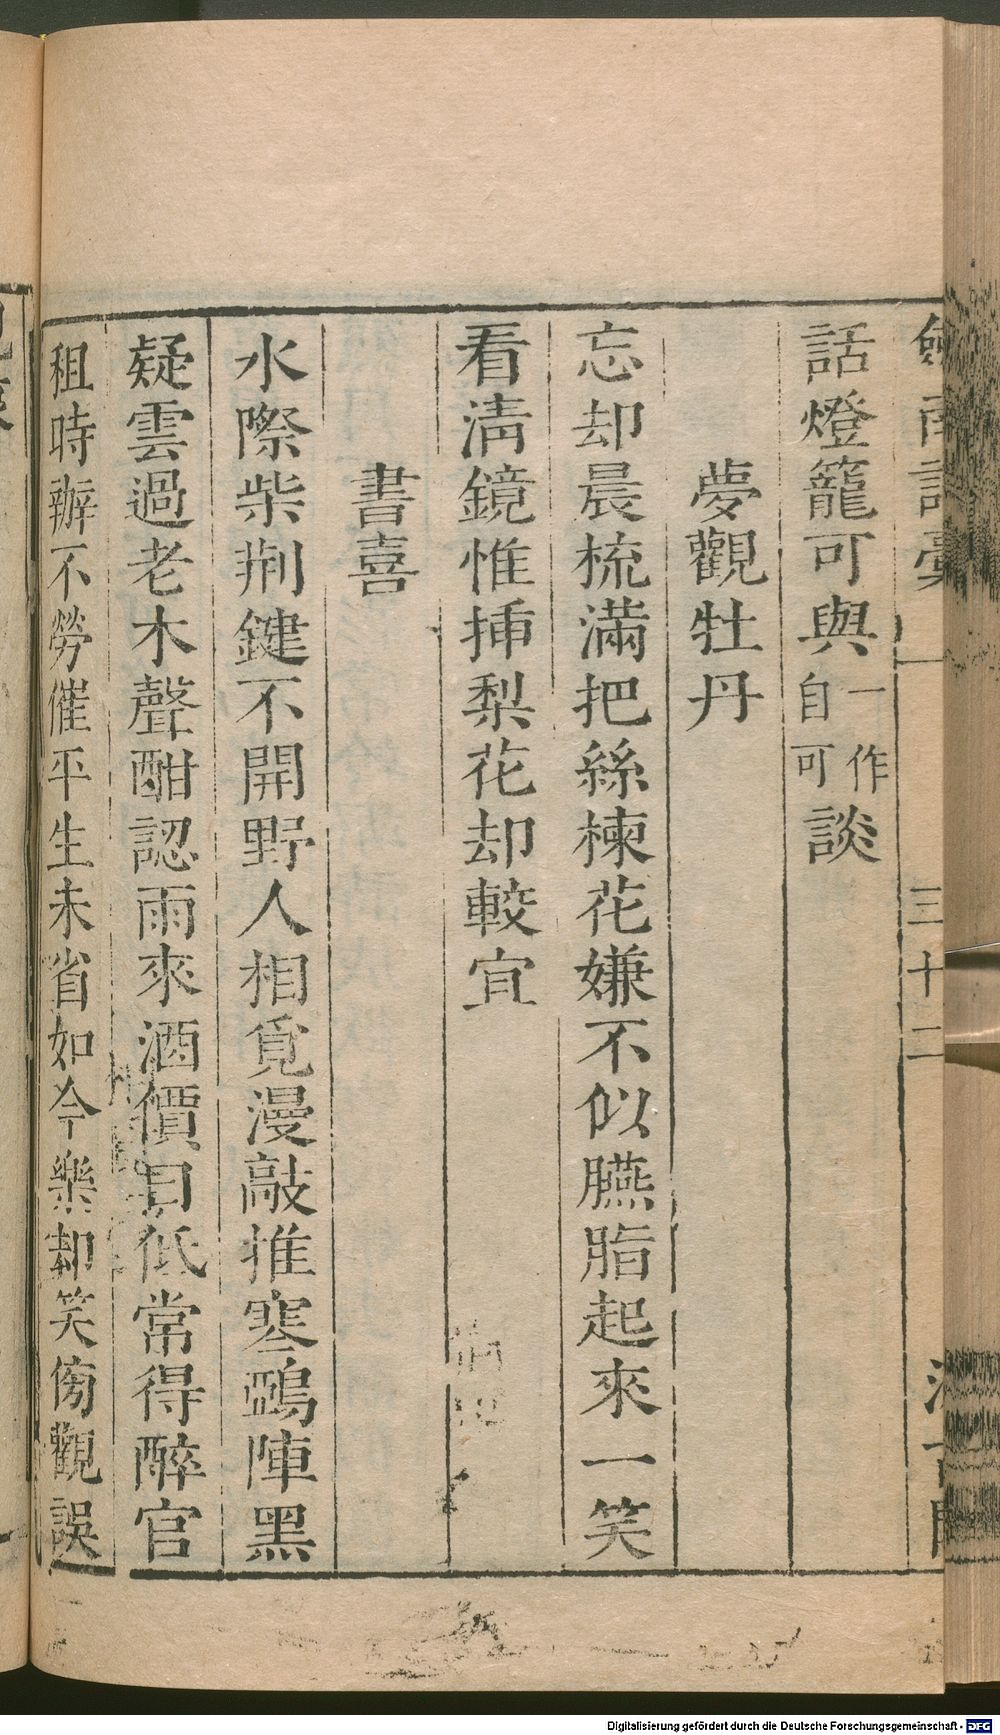 劍南詩稾
三十二
汲古閣
話燈籠可與一作自可談
夢觀牡丹
忘却晨梳滿把絲楝花嫌不似臙脂起來一笑
看淸鏡惟揷梨花却較宜
書喜
水際柴荆鍵不開野人相覓漫敲推寒鵶陣黑
疑雲過老木聲酣認雨來酒價日低常得醉官
租時辦不勞催平生未省如今樂却笑傍觀誤
Digitalisierung gefördert durch die Deutsche Forschungsgemeinschaft - DFG